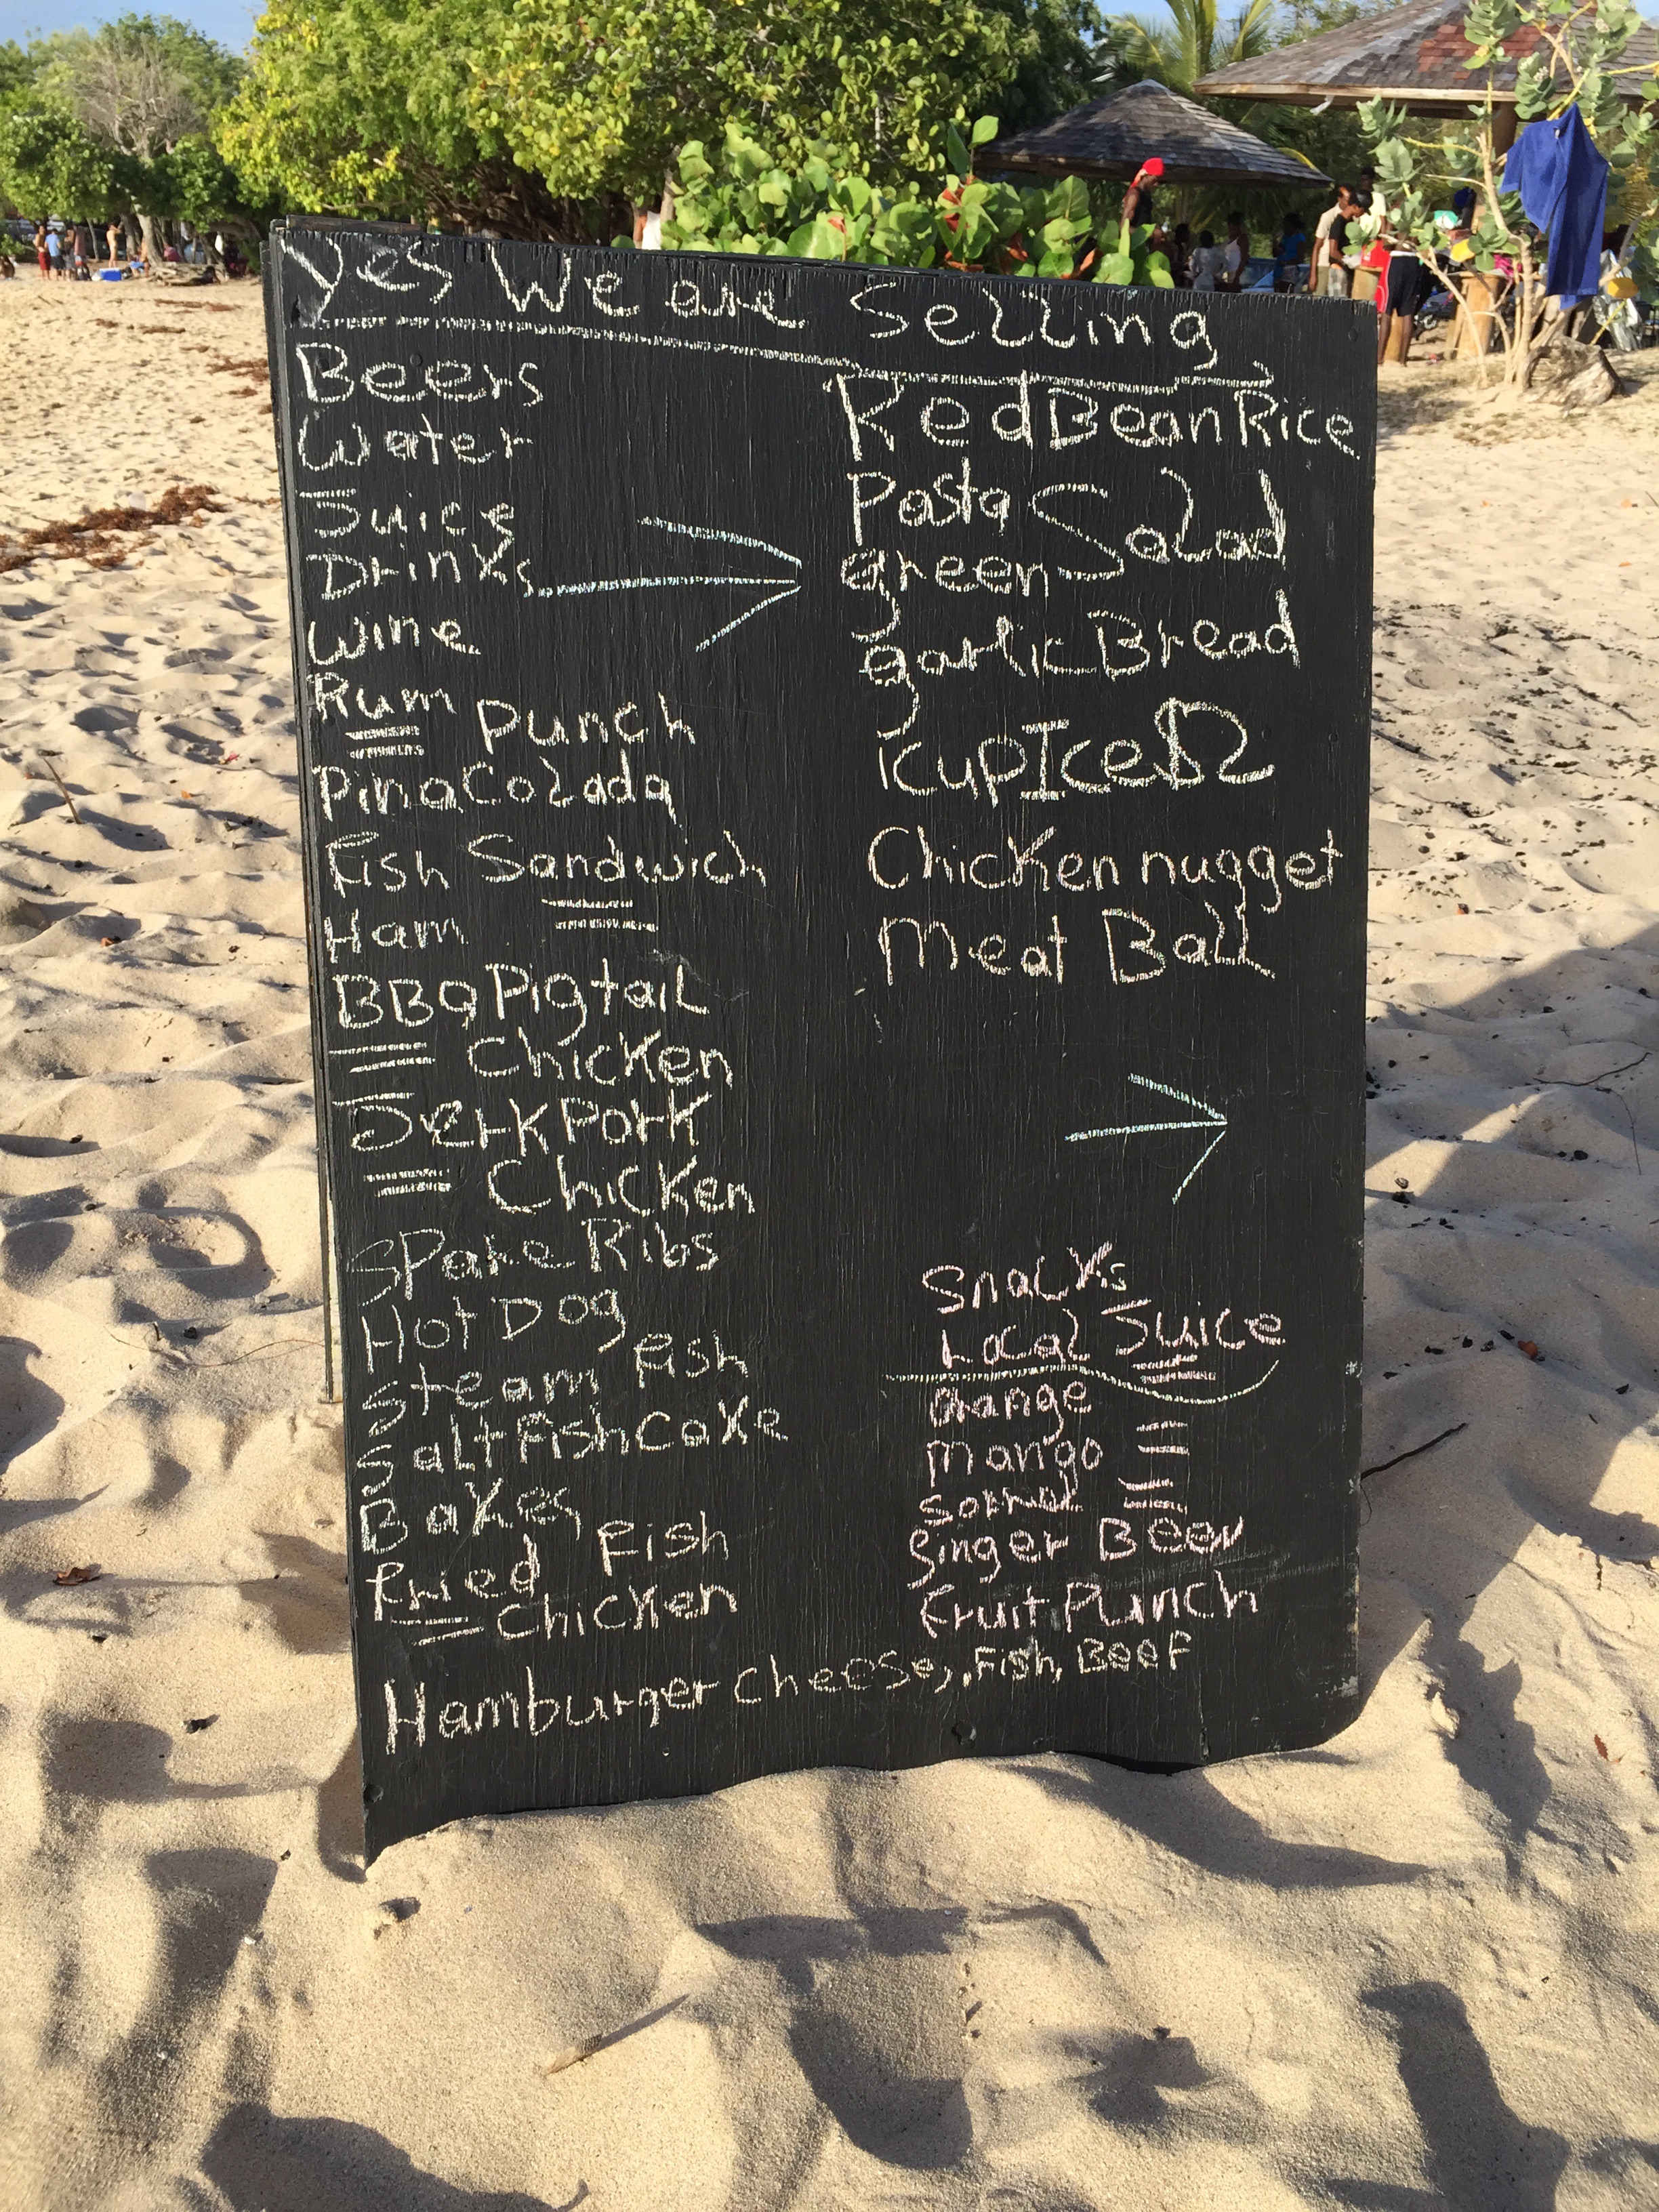 Yes We are Selling
Beers
Water
Juice
Drinks
Wine
Rum Punch
Pina Colada
Fish Sandwich
Ham
BBQ Pigtail
Chicken
Jerk Pork
Chicken
Spare Ribs
Hot Dog
Steam Fish
Salt Fish Cake
Bakes
Fried Fish
Chicken
Hamburger Cheese, Fish, Beef
Red Bean Rice
Pasta Salad
green
garlic Bread
1 cup Ice $2
Chicken nugget
Meat Ball
Snacks
Local Juice
Orange
Mango
Sorrel
Ginger Beer
Fruit Punch